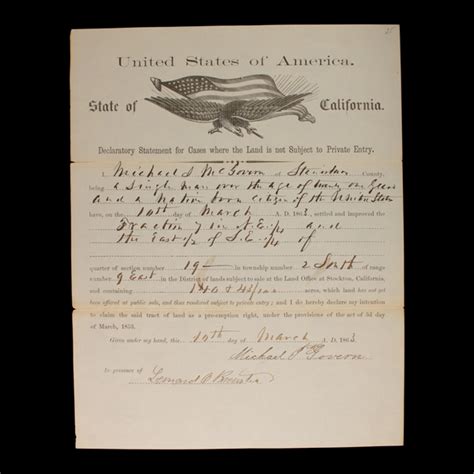 United States of America.
State of California.
Declaratory Statement for Cases where the Land is not Subject to Private Entry.
I Michael of Stanislaus County,
being a Single man over the age of twenty one Years
and a Native born citizen of the United States
have, on the 10th day of March A. D. 1863, settled and improved the
Fraction and
the East 1/2 of S.E. 1/4 of
quarter of section number 19 in township number 2 South of range
number 9 East in the District of lands subject to sale at the Land Office at Stockton, California,
and containing acres, which land has not yet
been offered at public sale, and thus rendered subject to private entry; and I do hereby declare my intention
to claim the said tract of land as a pre-emption right, under the provisions of the act of 3d day
of March, 1853.
Given under my hand, this 10th day of March A. D. 1863
Michael
In presence of Leonard